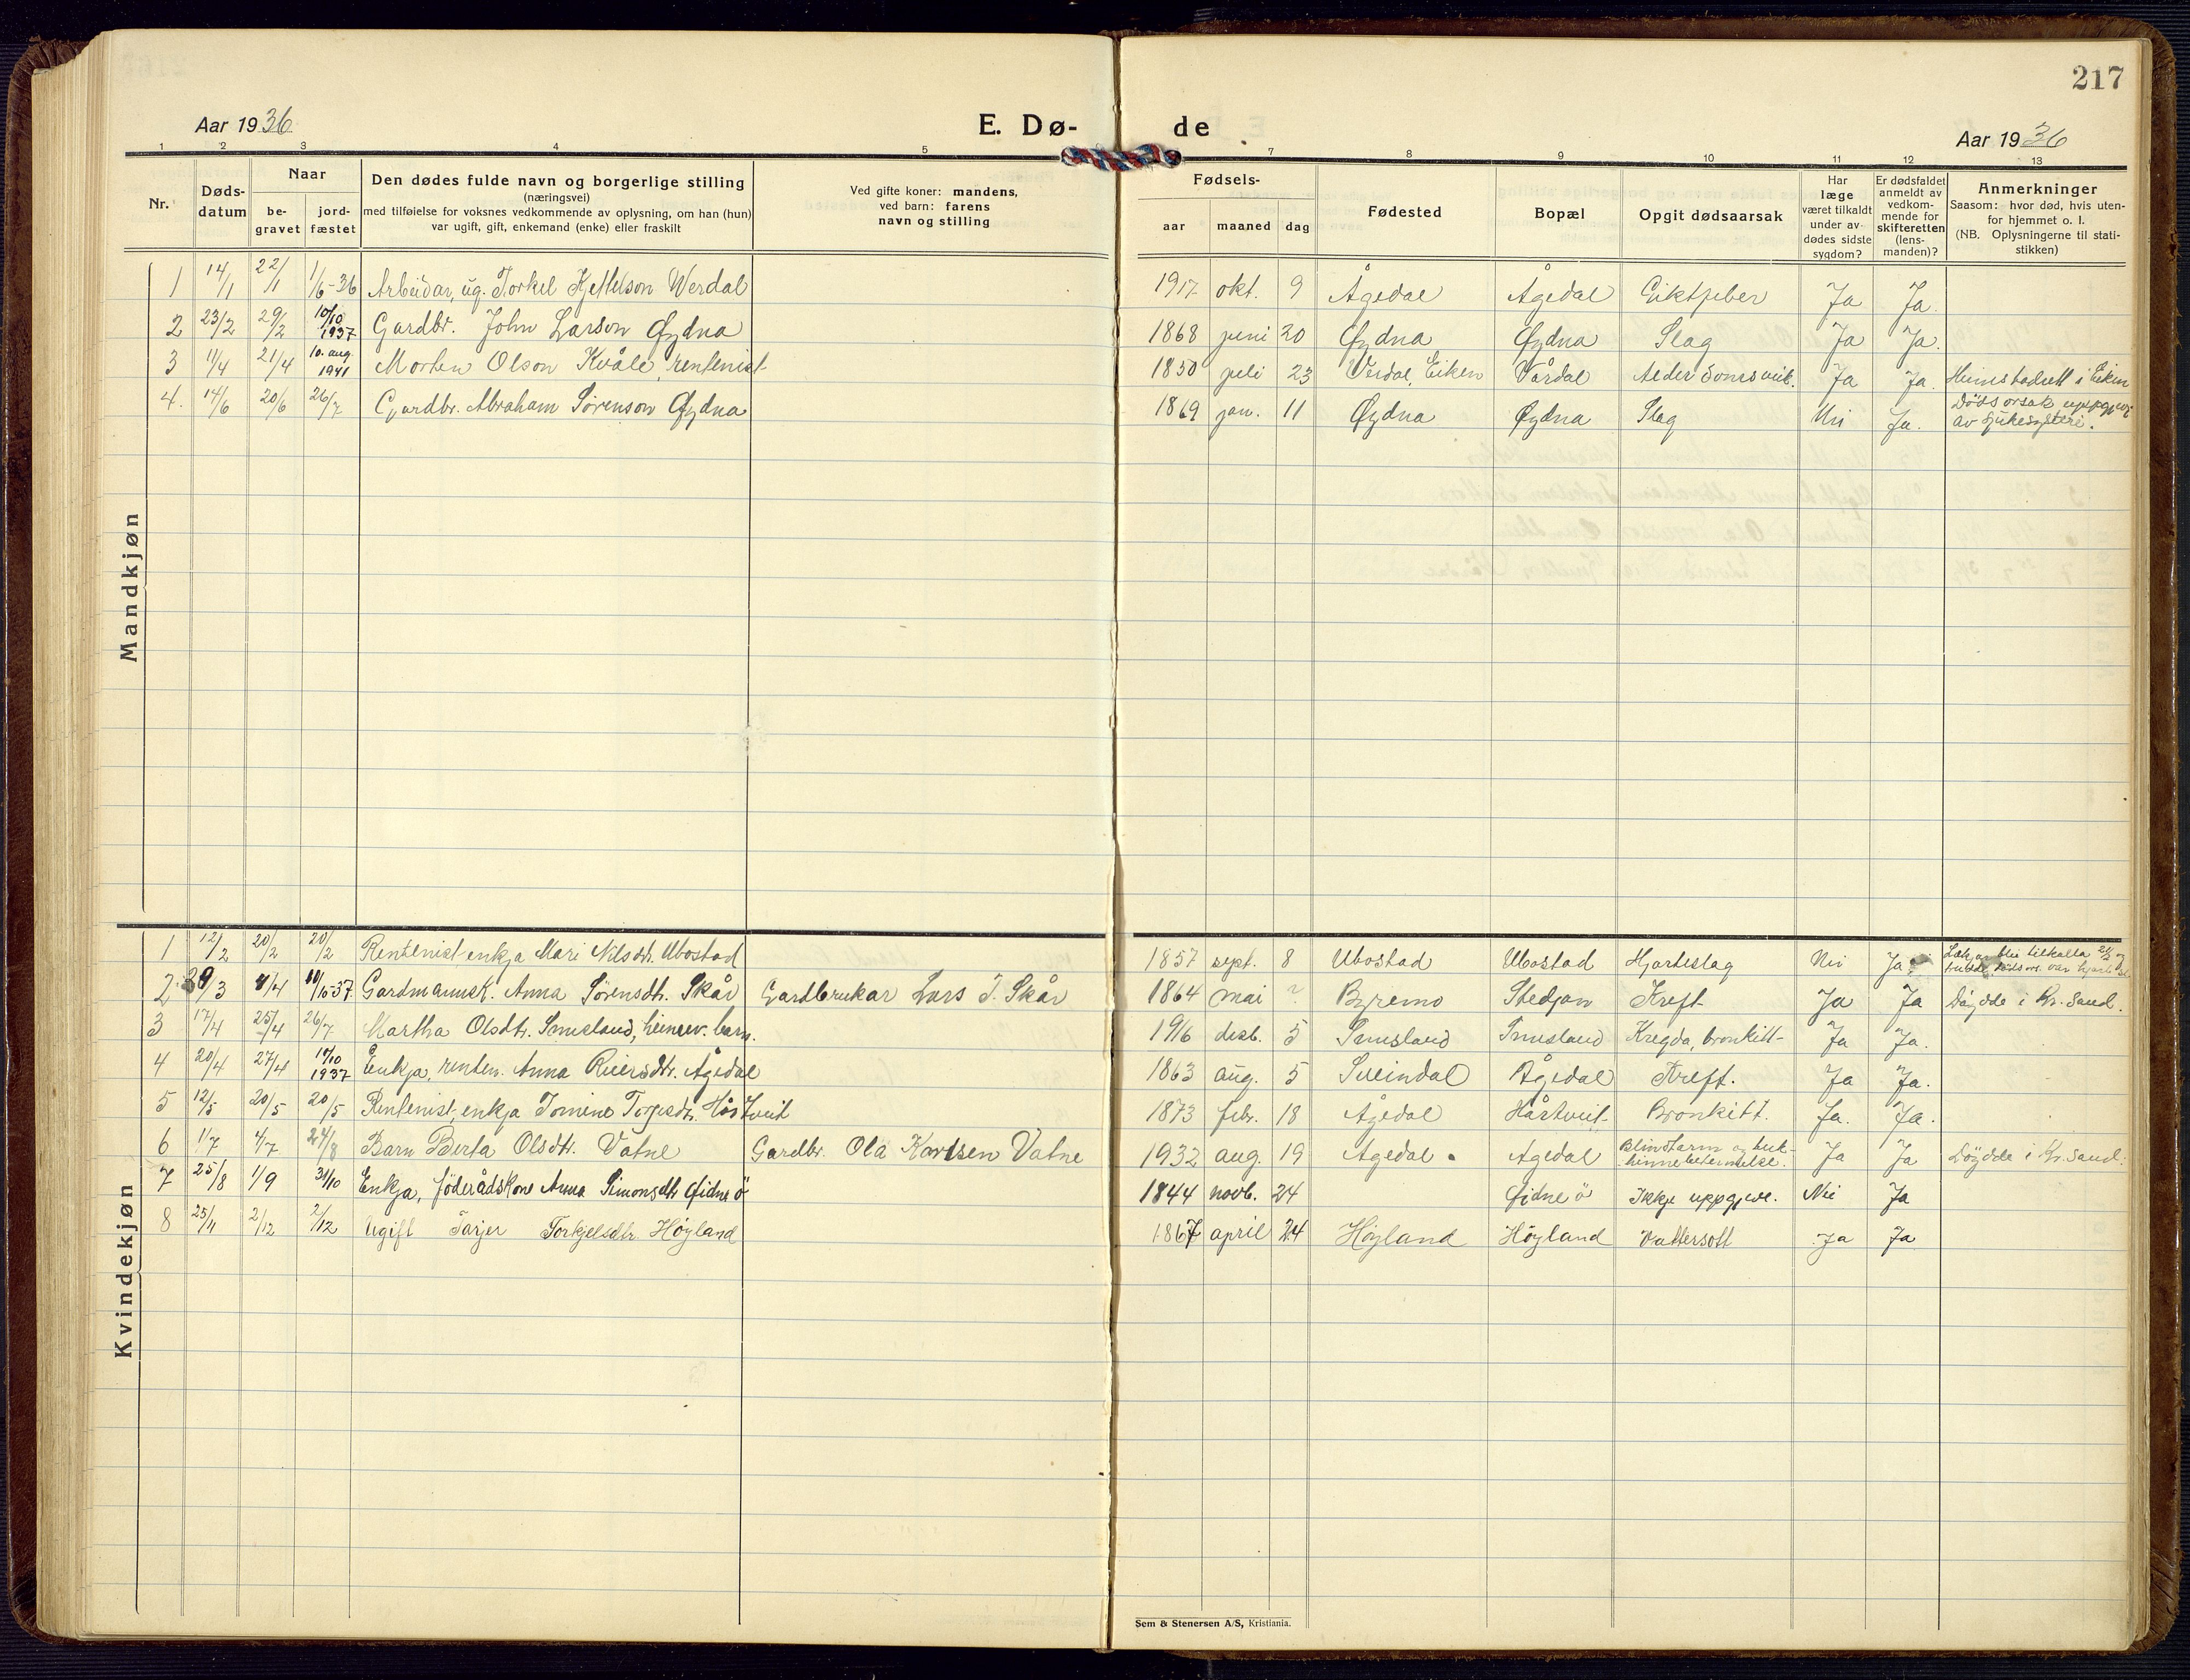 217
Aar 1936 E. Dø- de Aar 1936
1 2 3 4 5 7 8 9 10 11 12 13
Nr.
Døds-
datum
Naar
be-
gravet
jord-
fæstet
Den dødes fulde navn og borgerlige stilling
(næringsvei)
med tilføielse for voksnes vedkommende av oplysning, om han (hun)
var ugift, gift, enkemand (enke) eller fraskilt
Ved gifte koner: mandens,
ved barn: farens
navn og stilling
Fødsels-
aar maaned dag
Fødested
Bopæl
Opgit dødsaarsak
Har
læge
været tilkaldt
under av-
dødes sidste
sygdom?
Er dødsfaldet
anmeldt av
vedkom-
mende for
skifteretten
(lens-
manden)?
Anmerkninger
Saasom: hvor død, hvis uten-
for hjemmet o. l.
(NB. Oplysningerne til stati-
stikken)
Mandkjøn
1 14/1 22/1 1/6-36 Arbeidar, ug. Torkel Kjettelson Werdal 1917 okt. 9 Ågedal Ågedal Ja Ja.
2 23/2 29/2 10/10 1937 Gardbr. John Larson Øydna 1868 juni 20 Øydna Øydna Slag Ja Ja.
3 11/4 21/4 10. aug. 1941 Morten Olson Kvåle, rentenist 1850 juli 23 Verdal, Eiken Vårdal Alderdomsveik. Ja Ja. Heimstadrett i Eiken
4. 14/6 20/6 26/7 Gardbr. Abraham Sørenson Øydna 1869 jan. 11 Øydna Øydna Slag Nei Ja. Dødsorsak uppgjeve
av sjukesyster.
Kvindekjøn
1 12/2 20/2 20/2 Rentenist enkja Mari Nilsdtr. Ubostad 1857 sept. 8 Ubostad Ubostad Hjarteslag Nei Ja
2 29/3 4/4 10/10-37 Gardmannsk. Anna Sørensdtr. Skår Gardbrukar Lars J. Skår 1864 mai ? Byremo Stedjan Kreft Ja Ja Døydde i Kr. sand.
3 17/4 25/4 26/7 Martha Olsdtr. Smusland, heimev. barn. 1916 desb. 5 Smusland Smusland Kregda, bronkitt Ja Ja.
4 20/4 27/4 10/10 1937 Enkja, renten. Anna Reiersdtr. Ågedal 1863 aug. 5 Sveindal Ågedal Kreft. Ja Ja.
5 12/5 20/5 20/5 Rentenist, enkja Tomine Torjusdtr. Hårtveit 1873 febr. 18 Ågedal Hårtveit Bronkitt. Ja. Ja.
6 1/7 4/7 24/8 Barn Berta Olsdtr. Vatne Gardbr. Ola Karlsen Vatne 1932 aug. 19 Agedal Agedal Blindtarm og buk-
hinnebetennelse. Ja Ja Døydde i Kr. sand.
7 25/8 1/9 31/10 Enkja, föderådskone Anna Simonsdtr Øidneö 1844 novb. 24 Øidneö Ikkje uppgjeve. Nei Ja
8 25/11 2/12 2/12 Ugift Tarjer Torkjelsdtr Høyland 1867 april 24 Høyland Høyland Vattersott Ja Ja
Sem & Stenersen A/S, Kristiania.